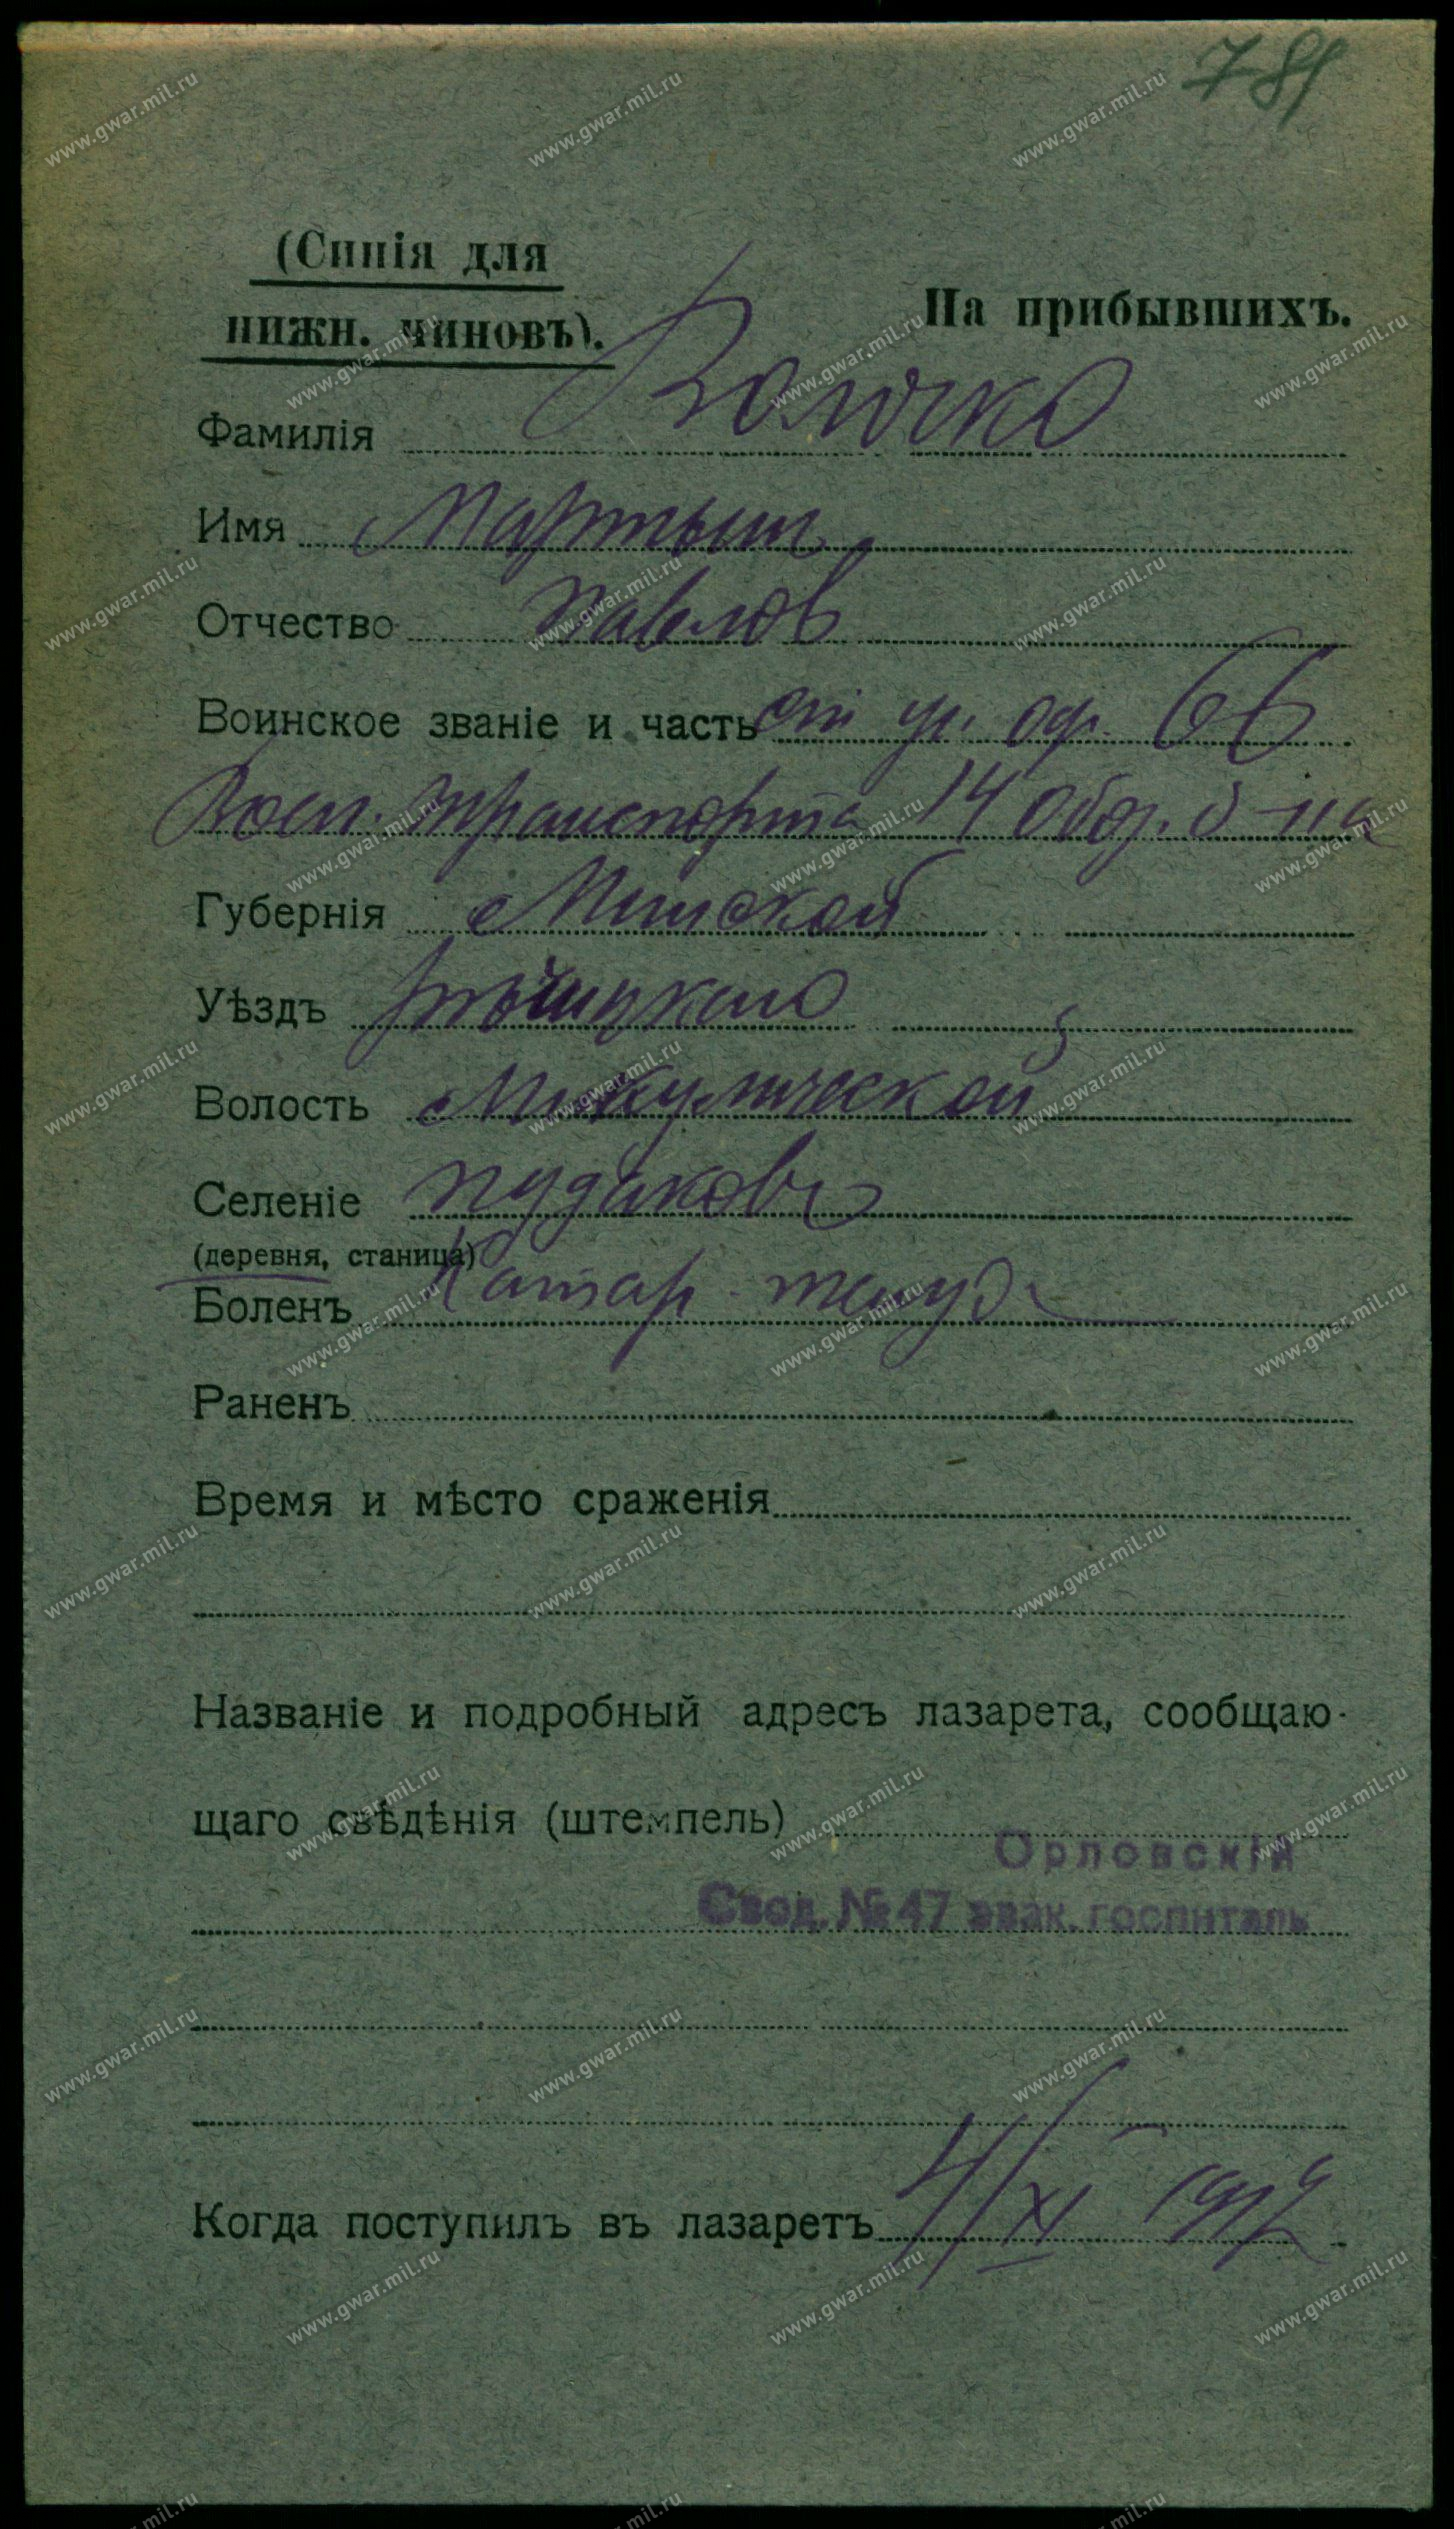 781
(Синія для
нижн. чиновъ).
На прибывшихъ.
Фамилія Волочко
Имя Мартын
Отчество Павлов
Воинское званіе и часть ст ун. оф. 66
Воен. транспорта 14 Обоз. б-на
Губернія Минской
Уѣздъ Рѣчицкаго
Волость Микуличской
Селеніе
(деревня, станица)
Боленъ Катар желуд
Раненъ
Время и мѣсто сраженія
Названіе и подробный адресъ лазарета, сообщаю-
щаго свѣдѣнія (штемпель)
Орловскій
Свод. № 47 эвак. госпиталь
Когда поступилъ въ лазаретъ 4/XI